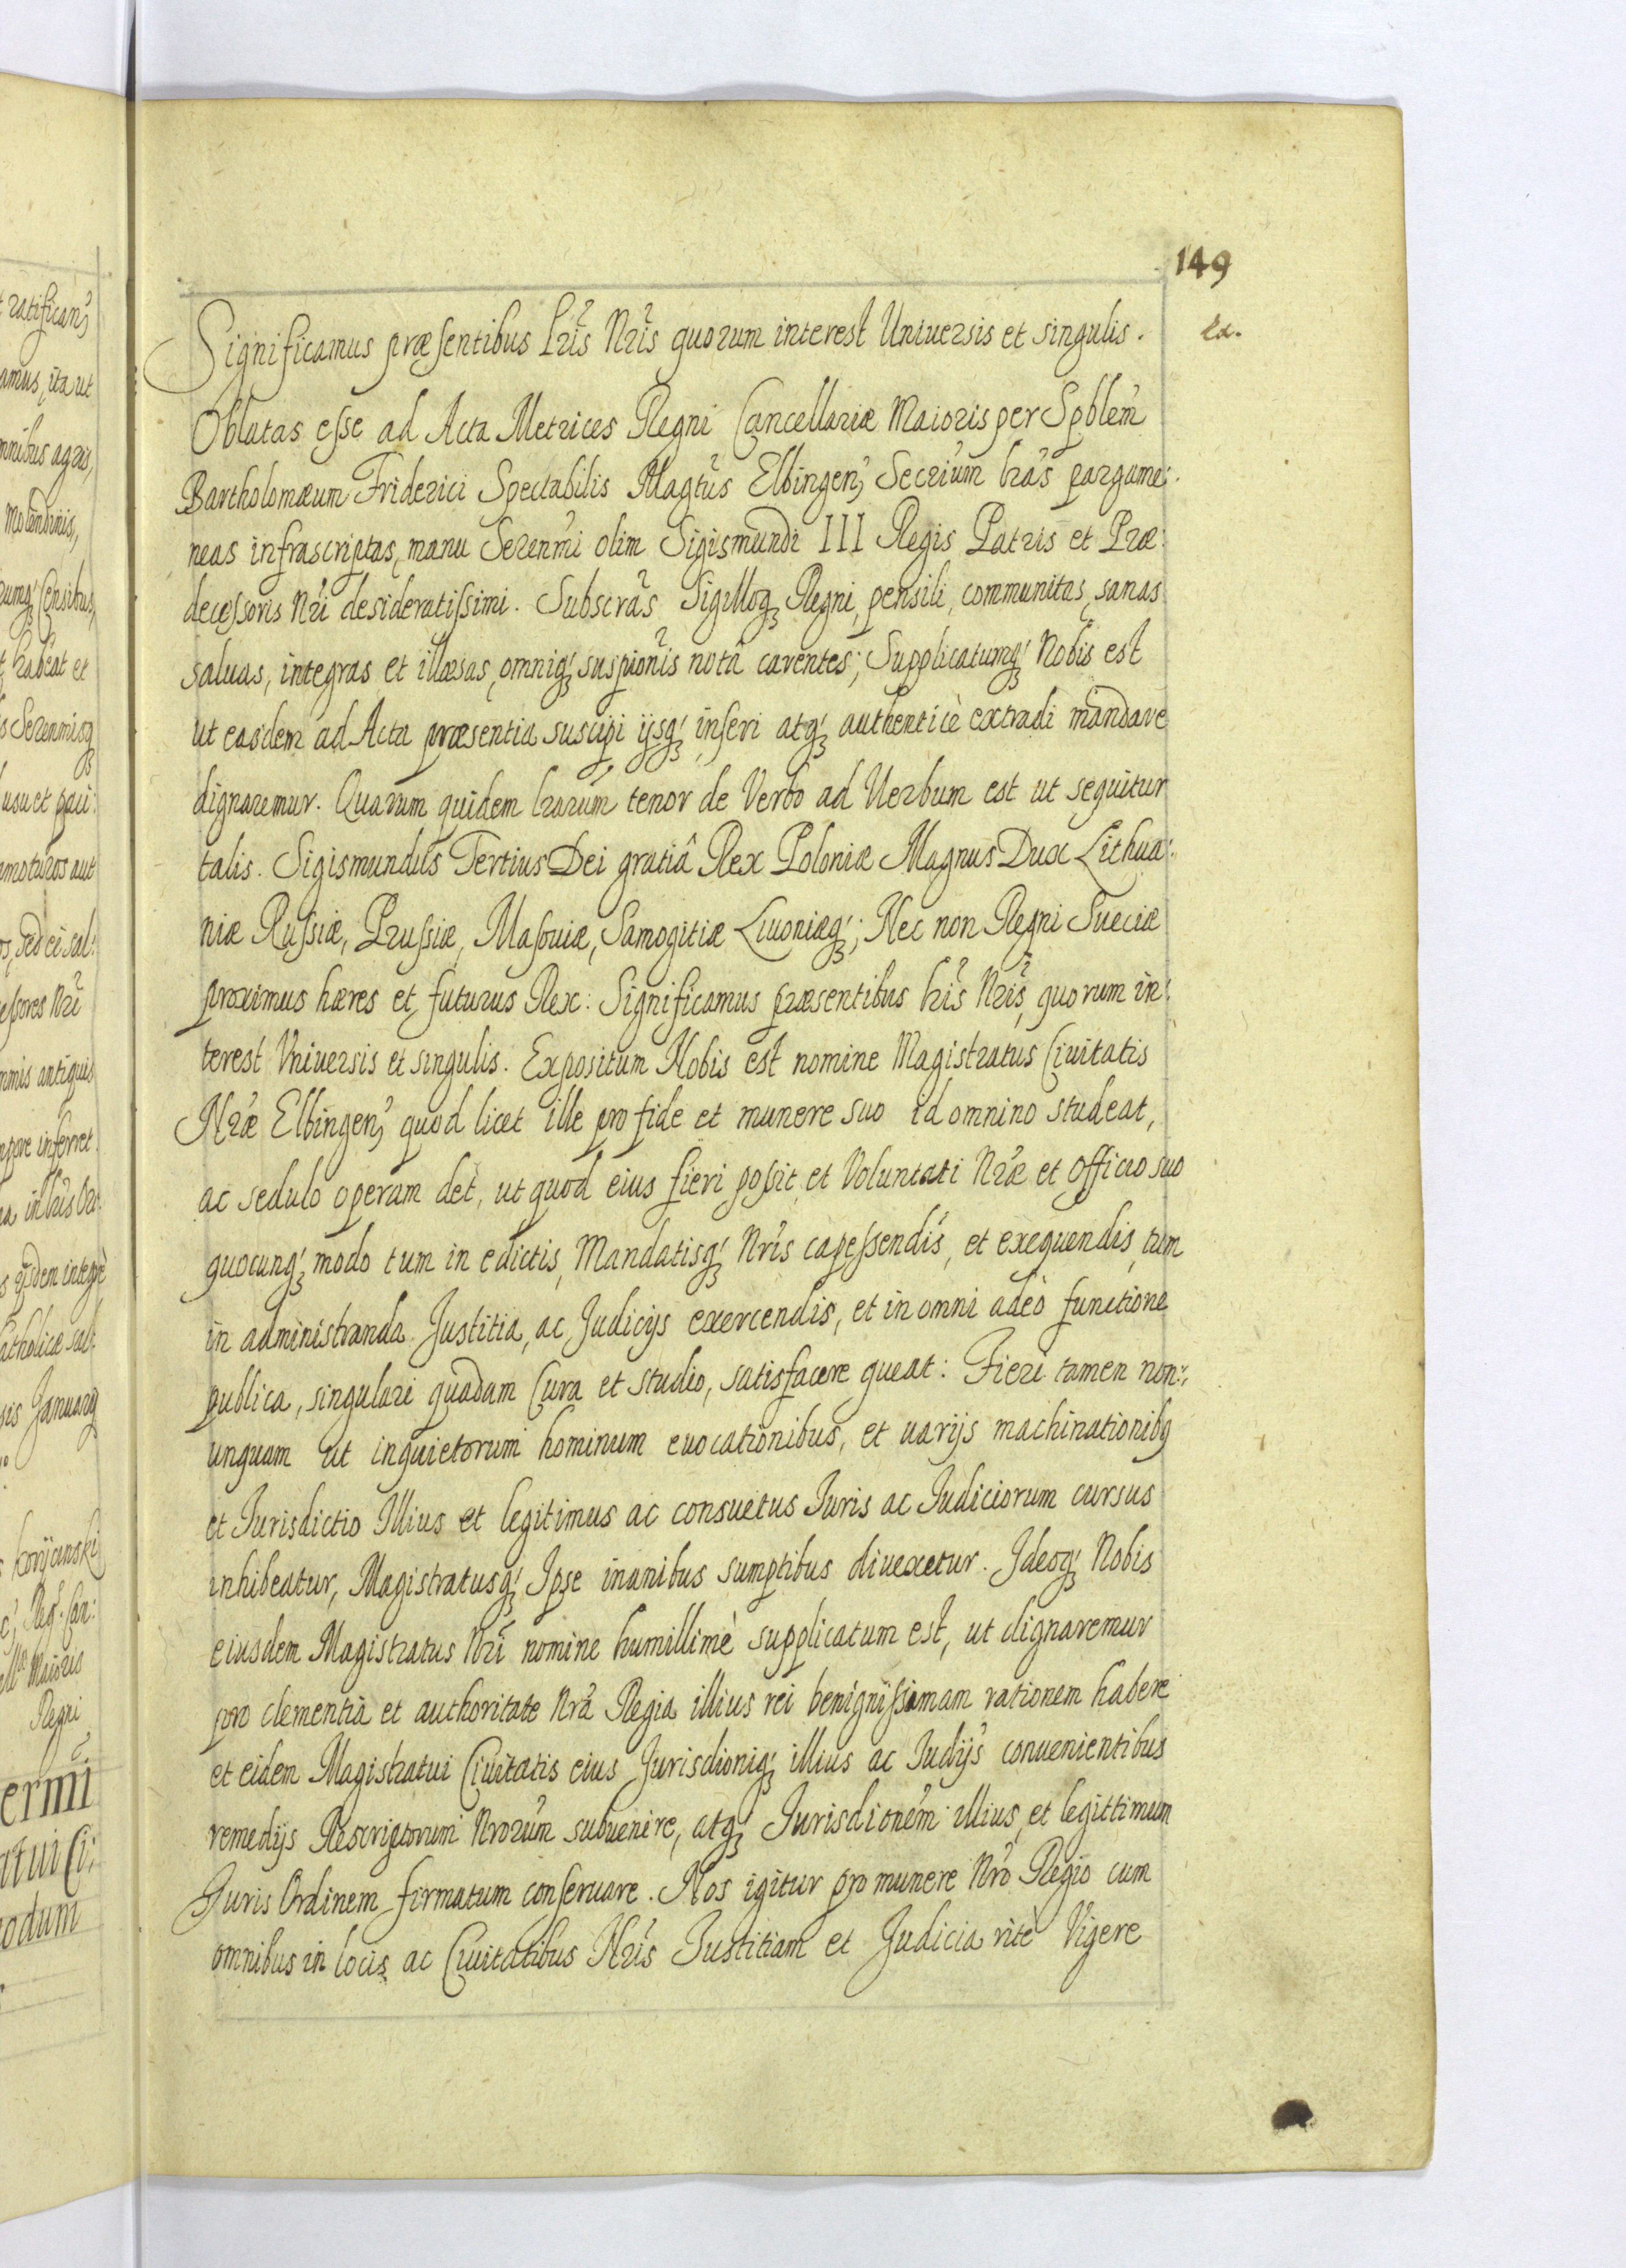 149
Significamus præsentibus Lris Nris quorum interest Universis et singulis.
Oblatas esse ad Acta Metrices Regni Cancellariæ Maioris per Spblem
Bartholomæum Friderici Spectabilis Magtus Elbingen Secrium lras pargame:
neas infrascriptas, manu Serenmi olim Sigismundi III Regis Patris et Præ:
decessoris Nri desideratissimi. Subscras Sigilloq Regni, pensili, communitas, sanas
saluas, integras et illæsas, omniq suspionis notâ carentes; Supplicatumq Nobis est
ut easdem ad Acta præsentia suscipi ijsq inseri atq authenticè extradi mandare
dignaremur. Quarum quidem lrarum tenor de Verbo ad Uerbum est ut sequitur
talis. Sigismundus Tertius Dei gratiâ Rex Poloniæ Magnus Dux Lithua:
niæ Russiæ, Prussiæ, Masouiæ, Samogitiæ Liuoniæq; Nec non Regni Sueciæ
proximus hæres et futurus Rex: Significamus præsentibus lris Nris, quorum in:
terest Vniuersis et singulis. Expositum Nobis est nomine Magistratus Ciuitatis
Nræ Elbingen quod licet ille pro fide et munere suo id omnino studeat,
ac sedulo operam det, ut quod eius fieri possit et Voluntati Nræ et Officio suo
quocunq modo tum in edictis, Mandatisq Nris capessendis, et exequendis, tum
in administranda Justitia, ac Judicijs exercendis, et in omni adeò functione
publica, singulari quadam Cura et studio, satisfacere queat: Fieri tamen non:
unquam ut inquietorum hominum euocationibus, et uarijs machinationibq
et Jurisdictio Illius et legitimus ac consuetus Juris ac Judiciorum cursus
inhibeatur, Magistratusq Ipse inanibus sumptibus diuexetur. Ideoq Nobis
eiusdem Magistratus Nri nomine humillimè supplicatum est, ut dignaremur
pro clementiâ et authoritate Nra Regia illius rei benignissimam rationem habere
et eidem Magistratui Ciuitatis eius Jurisdioniq illius ac Judijs conuenientibus
remedijs Rescriptorum Nrorum subuenire, atq Jurisdionem illius, et legittimum
Juris Ordinem firmatum conseruare. Nos igitur pro munere Nro Regio cum
omnibus in locis ac Ciuitatibus Nris Justitiam et Judicia ritè Vigere